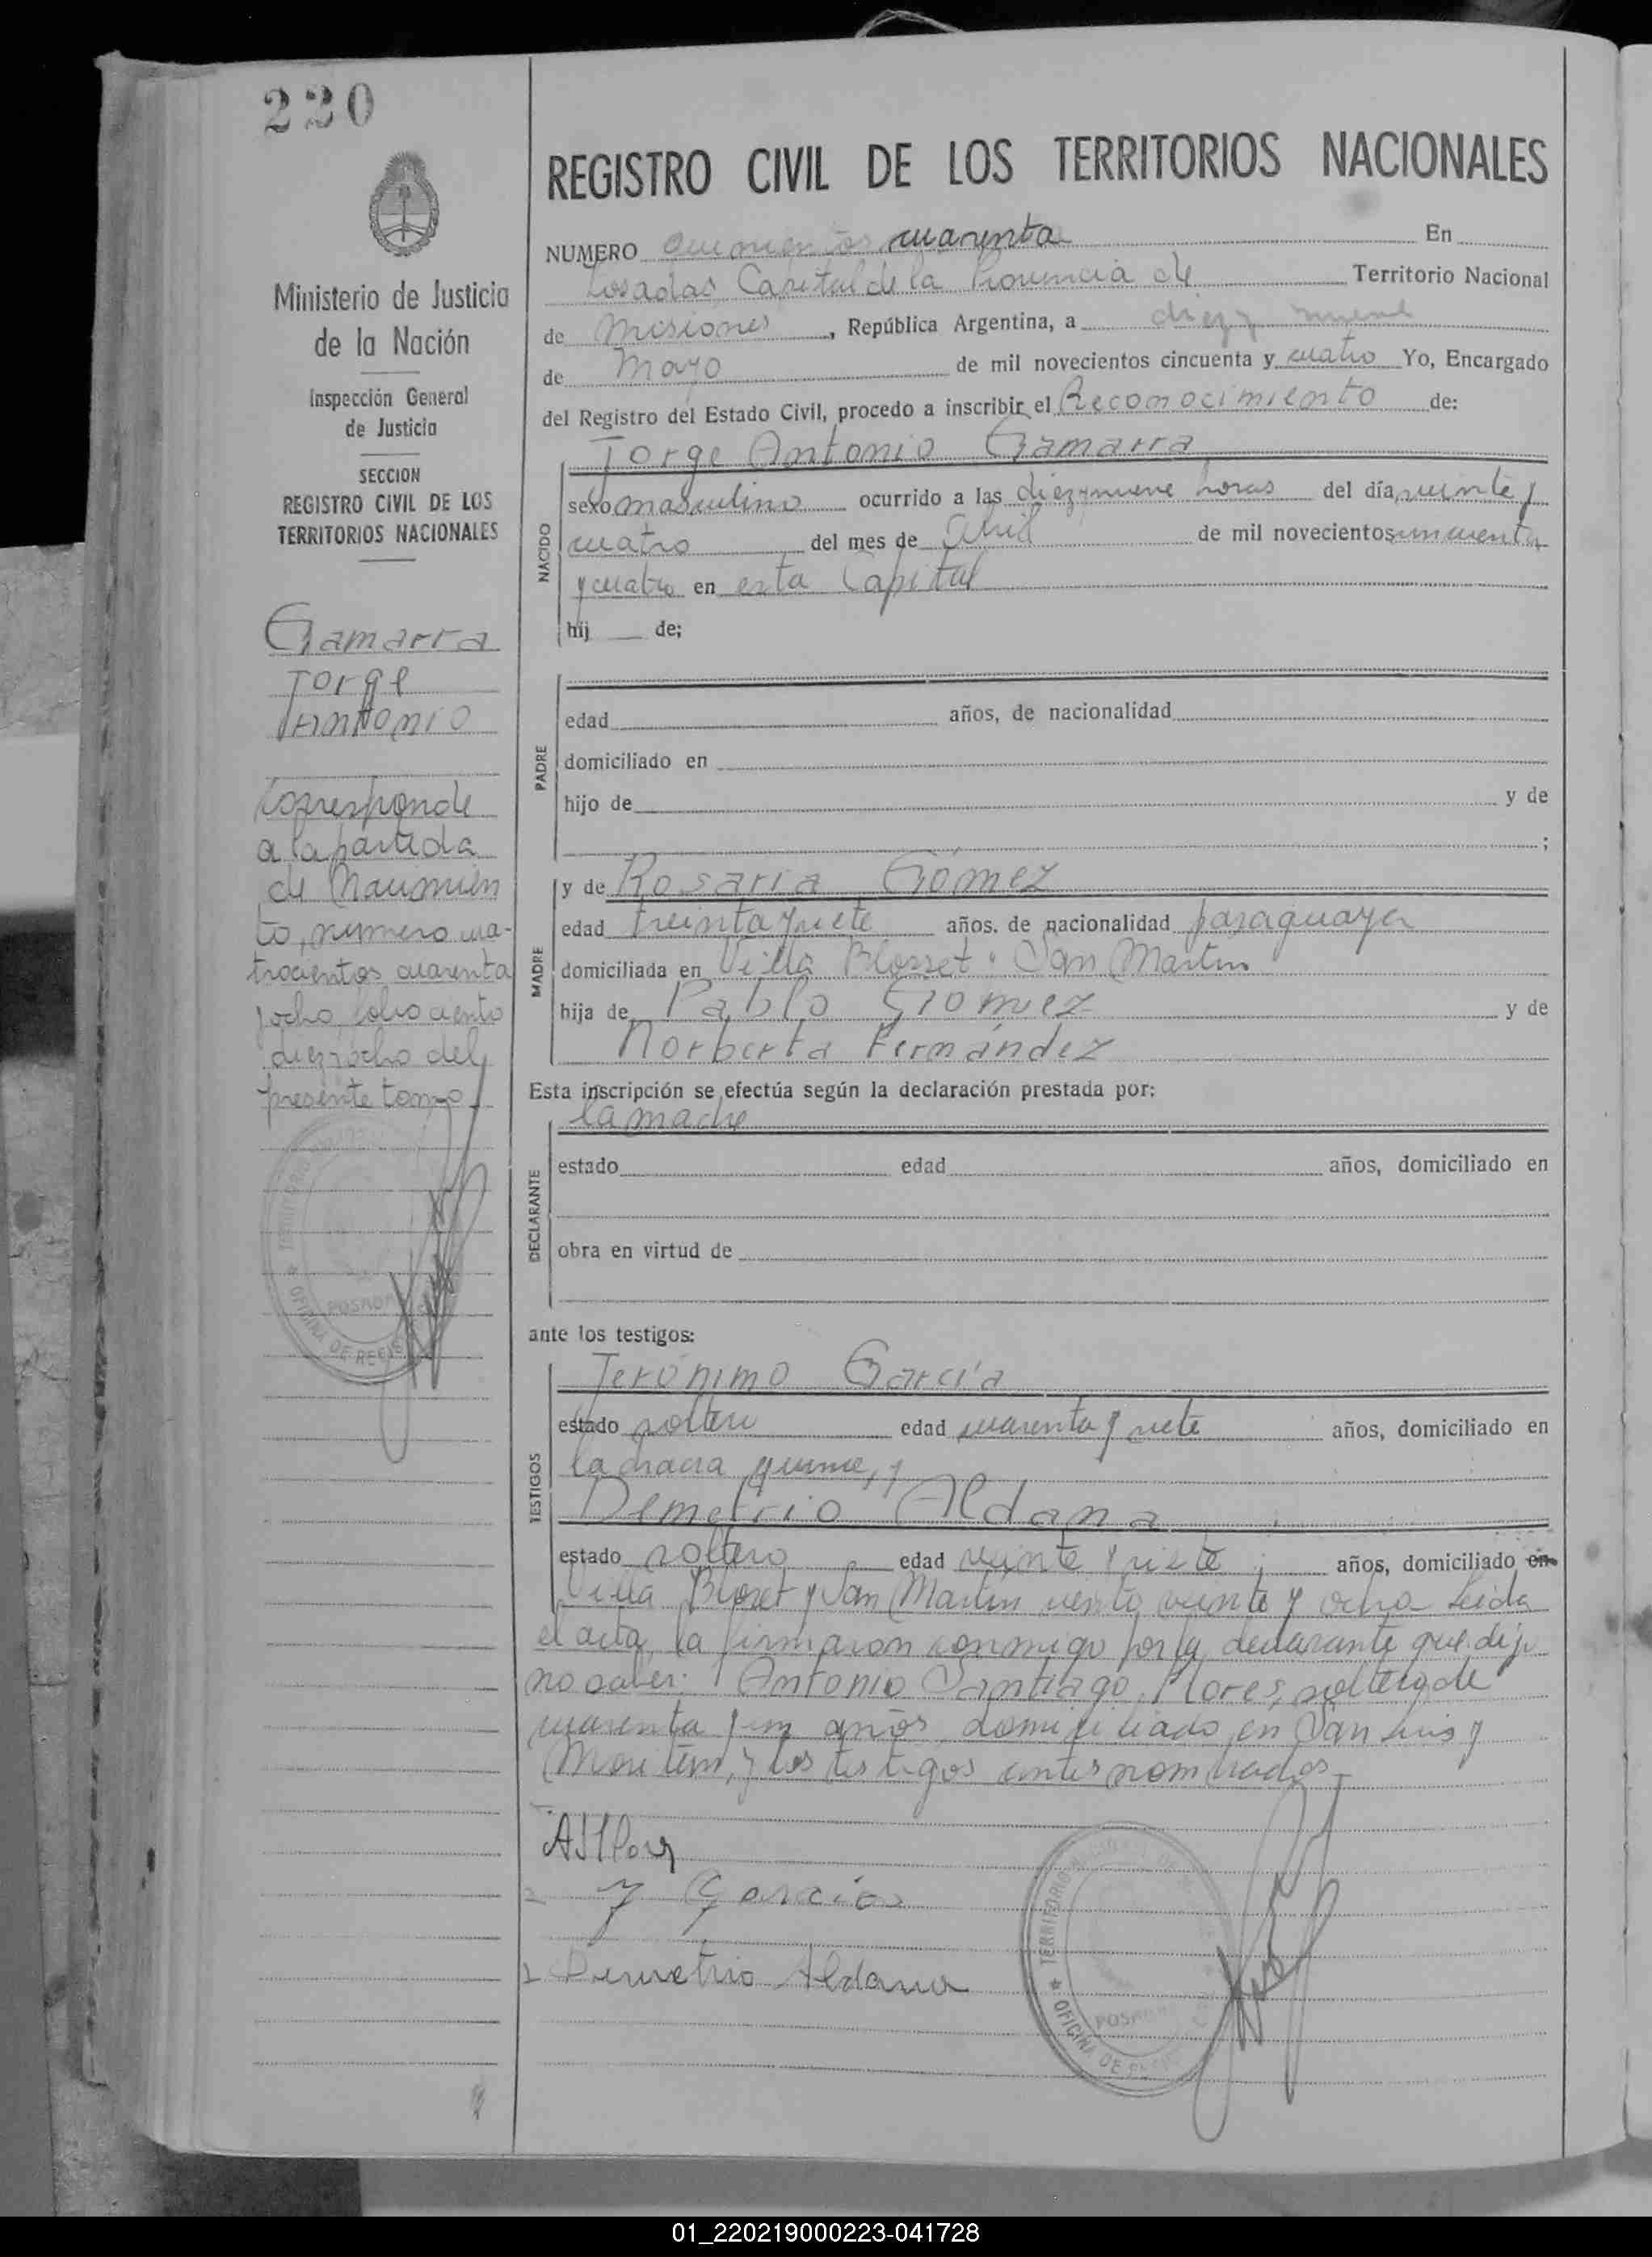 220
Ministerio de Justicia
de la Nación
Inspección General
de Justicia
SECCION
REGISTRO CIVIL DE LOS
TERRITORIOS NACIONALES
Gamarra
Jorge
Antonio
Corresponde
a la partida
de Nacimien
to, número cua-
trocientos cuarenta
y ocho, folio ciento
diez y ocho del
presente tomo
POSADAS
OFICINA DE REGISTRO
REGISTRO CIVIL DE LOS TERRITORIOS NACIONALES
NUMERO Quinientos cuarenta En
Posadas Capital de la Provincia de Territorio Nacional
de Misiones, República Argentina, a diez y nueve
de Mayo de mil novecientos cincuenta y cuatro Yo, Encargado
del Registro del Estado Civil, procedo a inscribir el Reconocimiento de:
Jorge Antonio Gamarra
NACIDO
sexo masculino ocurrido a las diez y nueve horas del día, veinte y
cuatro del mes de Abril de mil novecientos cincuenta
y cuatro en esta Capital
hij de;
PADRE
edad años, de nacionalidad
domiciliado en
hijo de y de
;
MADRE
y de Rosaria Gómez
edad treinta y siete años, de nacionalidad paraguaya
domiciliada en Villa Blosset - San Martín
hija de Pablo Gómez y de
Norberta Fernández
Esta inscripción se efectúa según la declaración prestada por:
la madre
DECLARANTE
estado edad años, domiciliado en
obra en virtud de
ante los testigos:
TESTIGOS
Jerónimo García
estado soltero edad cuarenta y siete años, domiciliado en
la chacra quince, y
Demetrio Aldana
estado soltero edad veinte y siete años, domiciliado en
Villa Blosset y San Martín ciento veinte y ocho Leída
el acta, la firmaron conmigo por la declarante que dijo
no saber: Antonio Santiago Flores, soltero de
cuarenta y un años, domiciliado en San Luis y
y los testigos antes nombrados
J Garcia
Demetrio Aldana
TERRITORIO
POSADAS
OFICINA DE
01_220219000223-041728